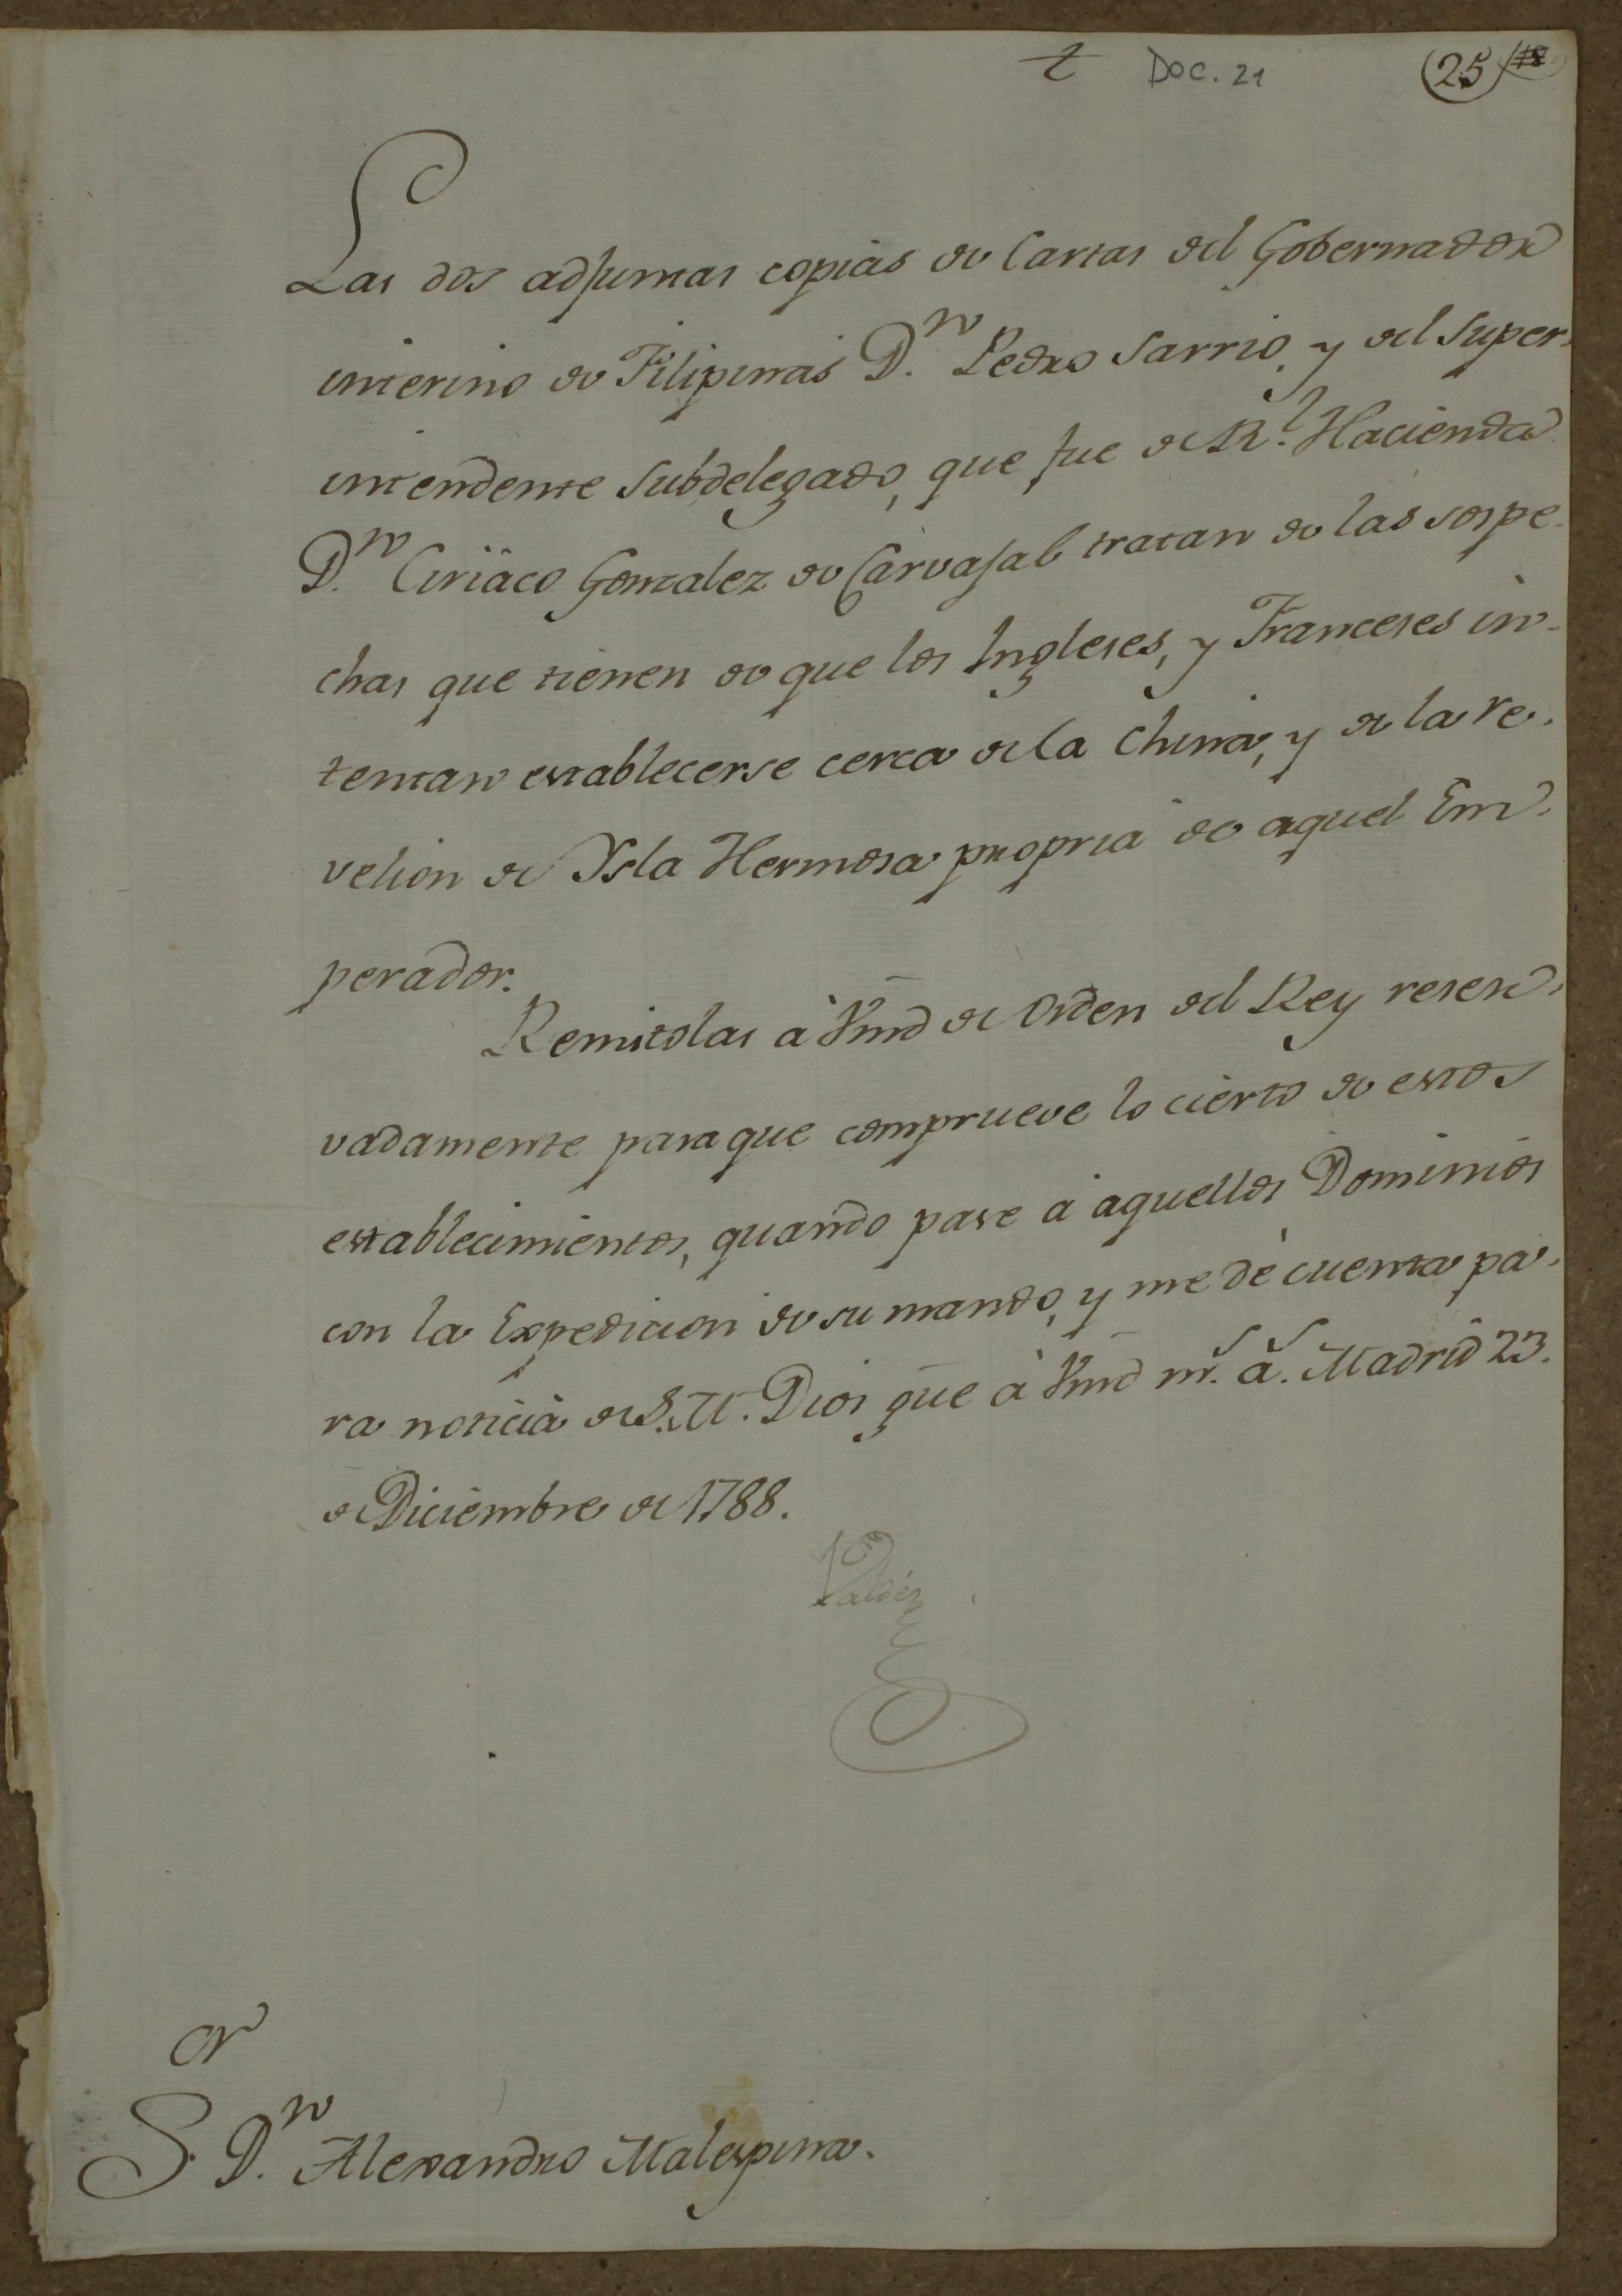 t Doc. 21 25 18
Las dos adjuntas copias de Cartas del Gobernador
interino de Filipinas D.n Pedro Sarrio, y del Super-
intendente Subdelegado, que fue de R.l Hacienda
D.n Ciriaco Gonzalez de Carvajal tratan de las sospe-
chas que tienen de que los Ingleses, y Franceses in-
tentan establecerse cerca de la China, y de la re-
velion de Ysla Hermosa propria de aquel Em-
perador.
Remitolas à Vmd de orden del Rey reser-
vadamente para que comprueve lo cierto de estos
establecimientos, quando pase à aquellos Dominios
con la Expedicion de su mando, y me dè cuenta pa-
ra noticia de S.M. Dios gue à Vmd m.s a.s Madrid 23.
de Diciembre de 1788.
Valdés
S.or D.n Alexandro Malespina.